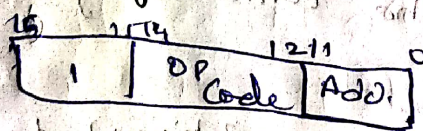 15 15 14 12 11 0
1 OP Code Add.